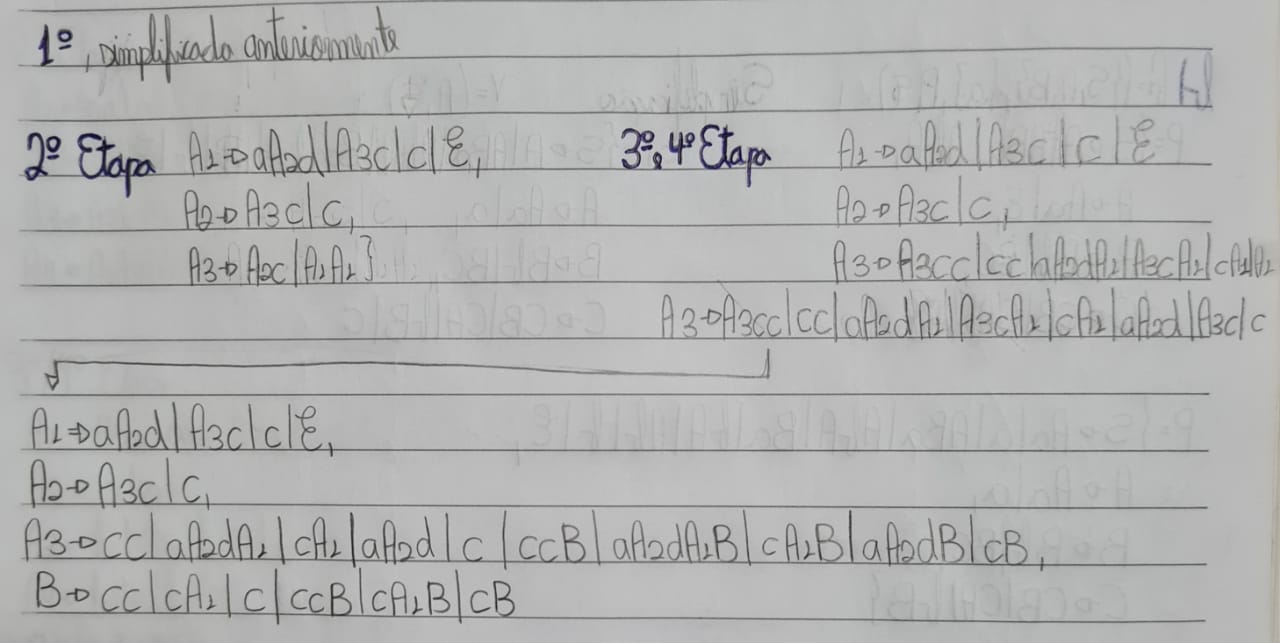 1º, simplificado anteriormente
2º Etapa A1→aA2d|A3c|c|ε,
A2→A3c|c,
A3→A2c|A1A1},
3º, 4º Etapa A1→aA2d|A3c|c|ε
A2→A3c|c,
A3→A3cc|cc|aA2dA1|A3cA1|cA1|A1
A3→A3cc|cc|aA2dA1|A3cA1|cA1|aA2d|A3c|c
A1→aA2d|A3c|c|ε,
A2→A3c|c,
A3→cc|aA2dA1|cA1|aA2d|c|ccB|aA2dA1B|cA1B|aA2dB|cB,
B→cc|cA1|c|ccB|cA1B|cB